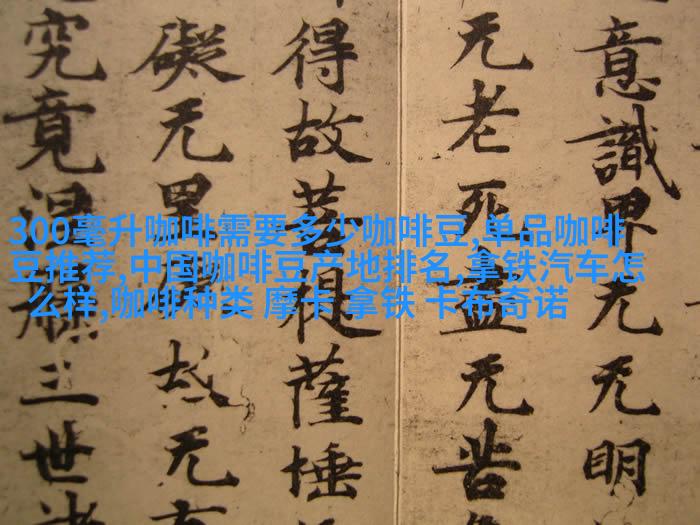 意識界无无明
无老死盡无苦
得故菩提薩埵
礙无罣礙故无有
究竟涅槃三世諸
300毫升咖啡需要多少咖啡豆,单品咖啡
豆推荐,中国咖啡豆产地排名,拿铁汽车怎
么样,咖啡种类 摩卡 拿铁 卡布奇诺